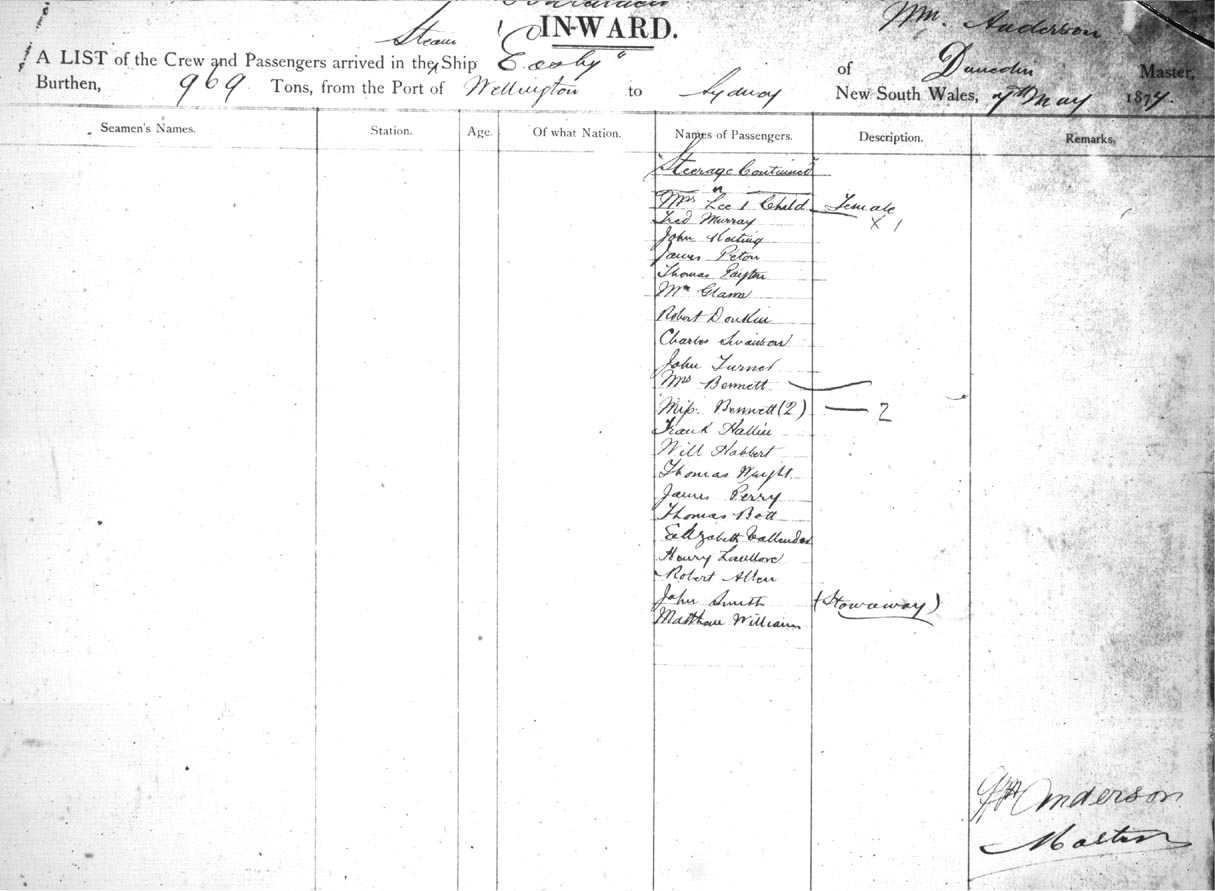 IN-WARD.
Wm. Anderson
Steam
A LIST of the Crew and Passengers arrived in the Ship "Easby" of Dunedin Master,
Burthen, 969 Tons, from the Port of Wellington to Sydney New South Wales, 7th May 1877.
Seamen's Names. Station. Age. Of what Nation. Names of Passengers. Description. Remarks.
"Steerage Continued"
Mrs Lee 1 Child Female
Fred Murray X 1
John Keating
James Peton
Thomas Payton
Mr
Robert Donkin
Charles Swainson
John Turner
Mrs Bennett
Miss. Bennett (2) 2
Frank Hallin
Will Habbert
Thomas Wright
James Perry
Thomas Bott
Elizabeth Callender
Henry
Robert Allen
John Smith (Stowaway)
Matthew Williams
Wm Anderson
Master